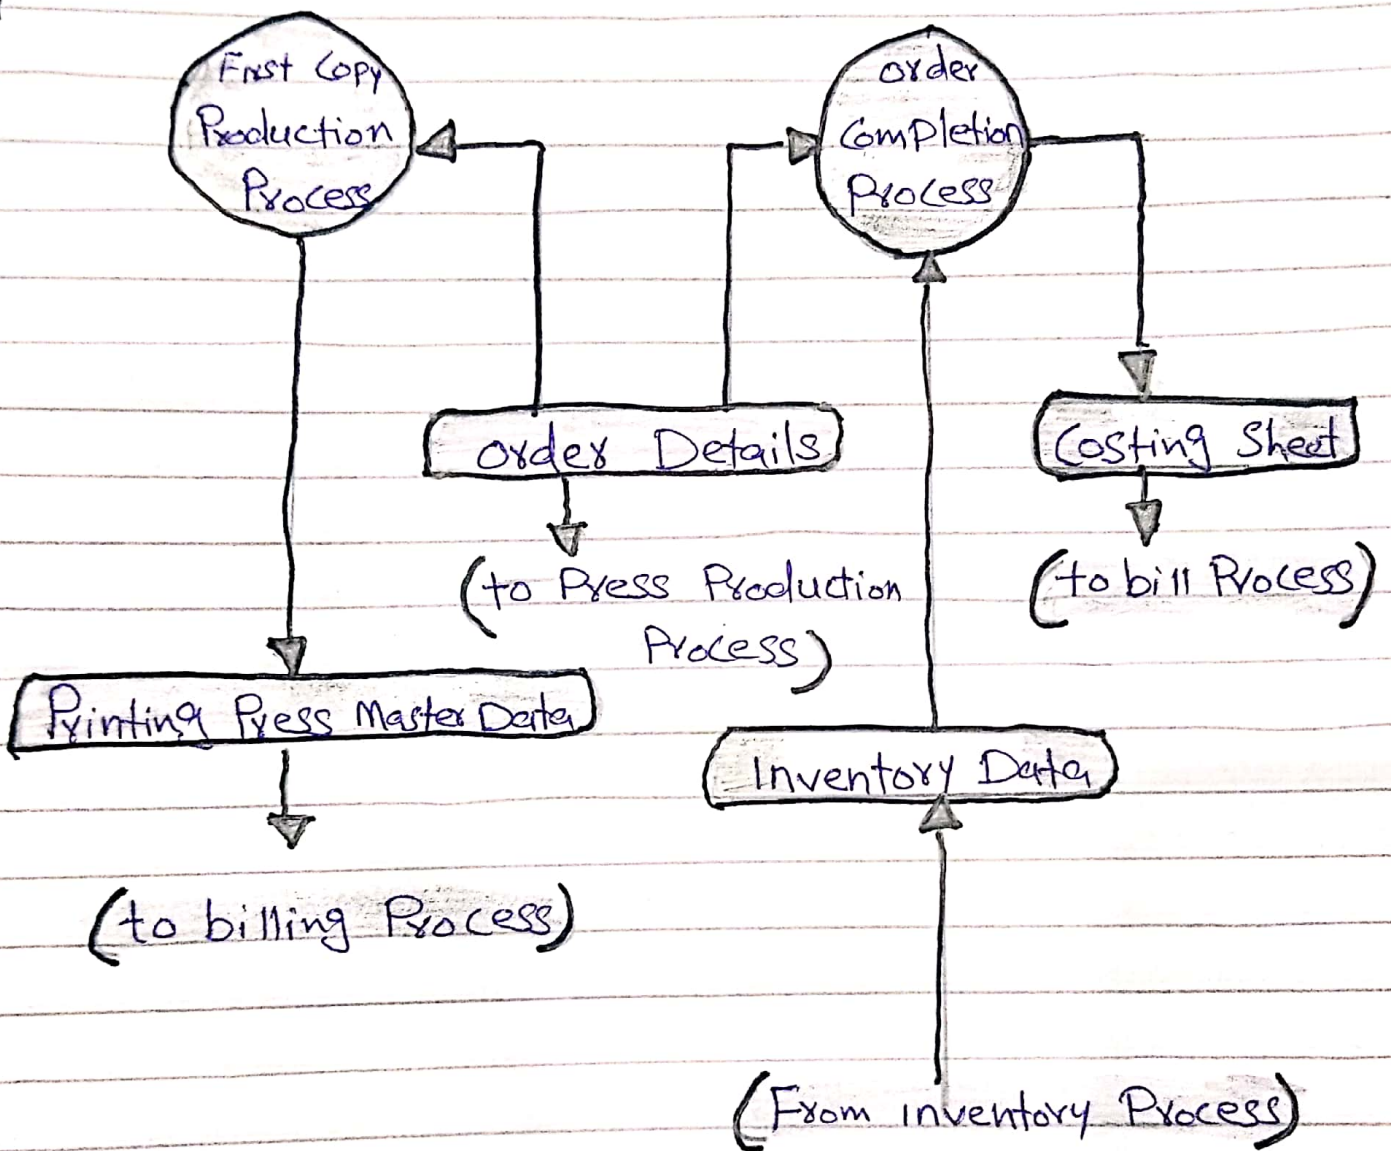 First Copy
Production
Process
order
Completion
Process
order Details
Costing Sheet
(to Press Production
Process)
(to bill Process)
Printing Press Master Data
Inventory Data
(to billing Process)
(From inventory Process)